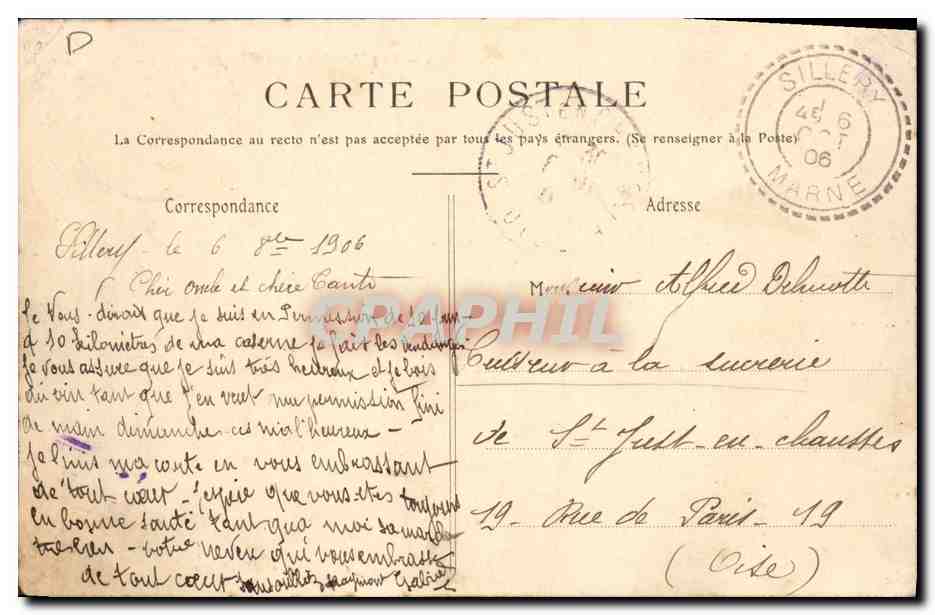 D
CARTE POSTALE
La Correspondance au recto n'est pas acceptée par tous les pays étrangers. (Se renseigner à la Poste)
SILLERY
6
06
MARNE
Correspondance
Adresse
Sillery le 6 8bre 1906
Cher oncle et chère Tante
Je vous dirait que je suis en Permission de
a 10 kilomètres de ma caserne je fait les vendanges
je vous assure que je suis très heureux et je bois
du vin tant que j'en veut ma permission fini
demain dimanche
je finis ma carte en vous embrassant
de tout cœur - j'espère que vous êtes toujours
en bonne santé tant qua moi sa marche
très bien - votre neveu qui vous embrasse
de tout cœur
Monsieur Alfred
à la sucrerie
de St Just-en-chaussées
19 - Rue de Paris - 19
(Oise)
CPAPHIL